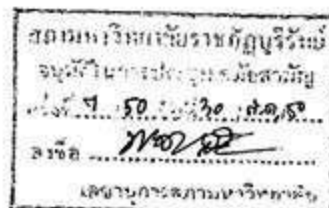 สภามหาวิทยาลัยราชภัฏบุรีรัมย์
อนุมัติในการประชุมสมัยสามัญ
ครั้งที่ 9 / 50 วันที่ 30 / ส.ค / 50
ลงชื่อ
เลขานุการสภามหาวิทยาลัย